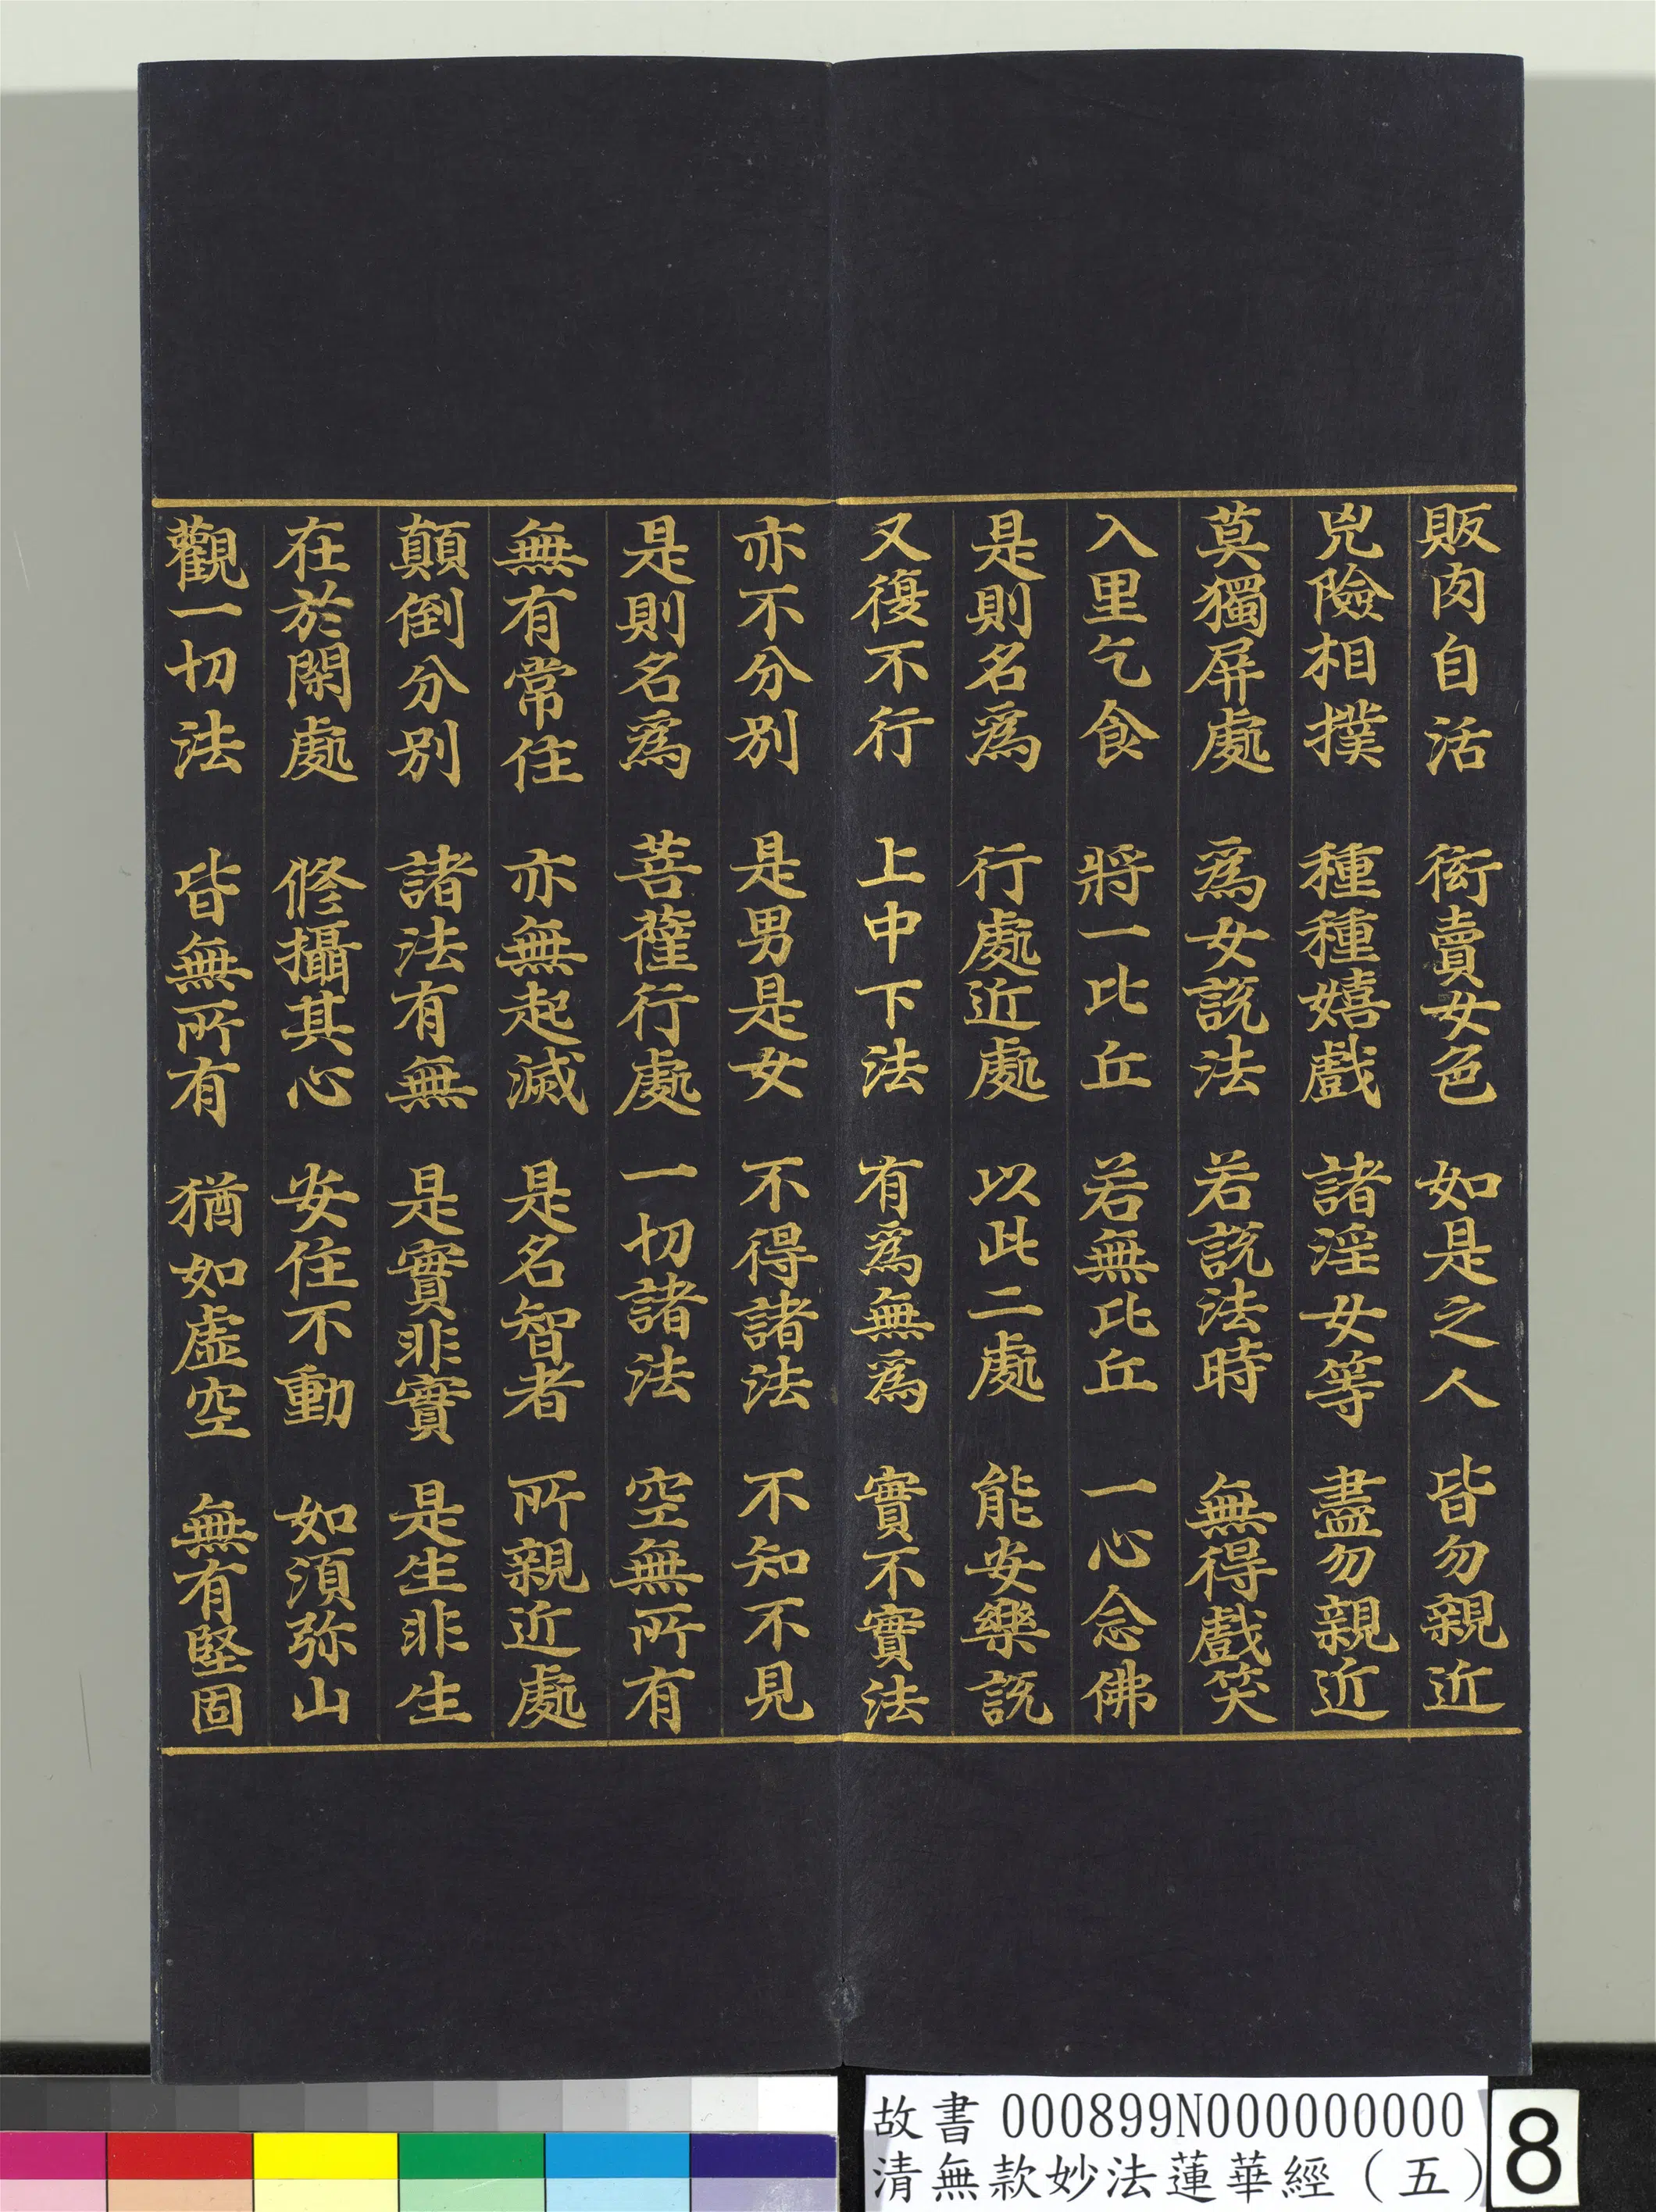 販肉自活 衒賣女色 如是之人 皆勿親近
兇險相撲 種種嬉戲 諸淫女等 盡勿親近
莫獨屏處 為女說法 若說法時 無得戲笑
入里乞食 將一比丘 若無比丘 一心念佛
是則名為 行處近處 以此二處 能安樂說
又復不行 上中下法 有為無為 實不實法
亦不分別 是男是女 不得諸法 不知不見
是則名為 菩薩行處 一切諸法 空無所有
無有常住 亦無起滅 是名智者 所親近處
顛倒分別 諸法有無 是實非實 是生非生
在於閑處 修攝其心 安住不動 如須弥山
觀一切法 皆無所有 猶如虛空 無有堅固
故書 000899N000000000
清無款妙法蓮華經（五）
8